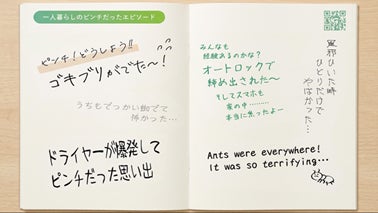 一人暮らしのピンチだったエピソード
ピンチ!どうしよう!!
ゴキブリがでた〜!
うちもでっかい蜘でて
怖かった…
ドライヤーが爆発して
ピンチだった思い出
みんなも
経験あるのかな?
オートロックで
締め出された〜
そしてスマホも
家の中………
本当に焦ったよー
風邪ひいた時
ひとりだけで
やばかった…
Ants were everywhere!
It was so terrifying...